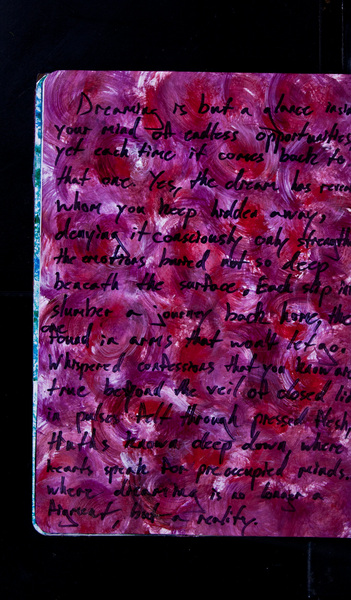 Dreaming is but a glance insi
your mind of endless opportunities
yet each time it comes back to
that one. Yes, the dream has revea
whom you keep hidden away,
denying it consciously only strength
the emotions buried not so deep
beneath the surface. Each slip in
slumber a journey back home, the
one
found in arms that won't let go.
Whispered confessions that you know are
true beyond the veil of closed lid
in pulses felt through pressed flesh,
that's known deep down, where
hearts speak for preoccupied minds.
where dreaming is no longer a
figment, but a reality.